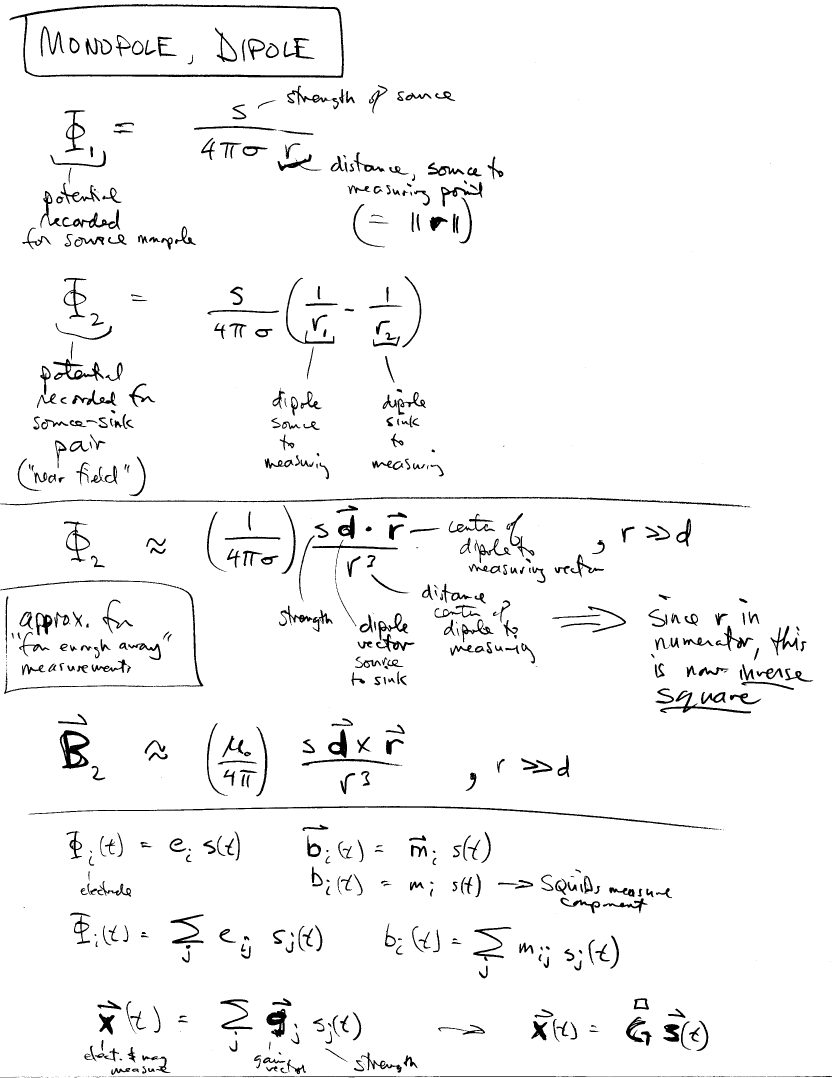 MONOPOLE, DIPOLE
Φ₁ = s / (4πσ r)
strength of source
distance, source to
measuring point
(= ||r||)
potential
recorded
for source monopole
Φ₂ = s / (4πσ) (1/r₁ - 1/r₂)
potential
recorded for
source-sink
pair
("near field")
dipole
source
to
measuring
dipole
sink
to
measuring
Φ₂ ≈ (1/4πσ) s d⃗ · r⃗ / r³ , r ≫ d
center of
dipole to
measuring vector
strength
dipole
vector
source
to sink
distance
center of
dipole to
measuring
approx. for
"far enough away"
measurements
⟹ since r in
numerator, this
is now inverse
square
B⃗₂ ≈ (μ₀/4π) s d⃗ x r⃗ / r³ , r ≫ d
Φᵢ(t) = eᵢ s(t)
electrode
b⃗ᵢ(t) = m⃗ᵢ s(t)
bᵢ(t) = mᵢ s(t) → SQUIDs measure
component
Φᵢ(t) = Σⱼ eᵢⱼ sⱼ(t)
bᵢ(t) = Σⱼ mᵢⱼ sⱼ(t)
x⃗(t) = Σⱼ g⃗ⱼ sⱼ(t) → x⃗(t) = G s⃗(t)
elect. & mag
measure
gain
vector
strength